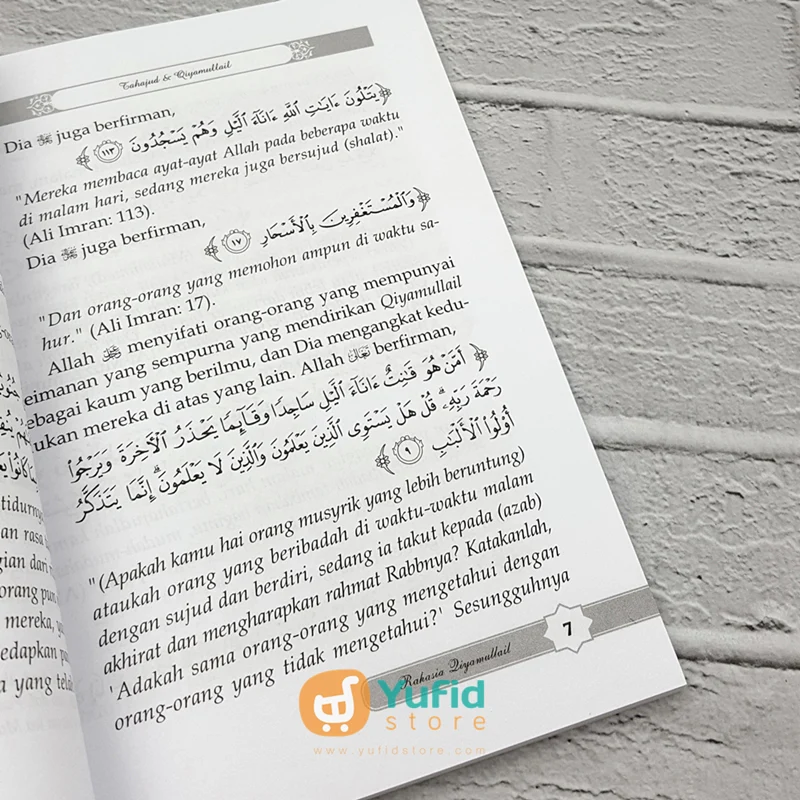 Tahajud & Qiyamullail
Dia ﷻ juga berfirman,
﴿يَتْلُونَ ءَايَٰتِ ٱللَّهِ ءَانَآءَ ٱلَّيْلِ وَهُمْ يَسْجُدُونَ ١١٣﴾
"Mereka membaca ayat-ayat Allah pada beberapa waktu
di malam hari, sedang mereka juga bersujud (shalat)."
(Ali Imran: 113).
Dia ﷻ juga berfirman,
﴿وَٱلْمُسْتَغْفِرِينَ بِٱلْأَسْحَارِ ١٧﴾
"Dan orang-orang yang memohon ampun di waktu sa-
hur." (Ali Imran: 17).
Allah ﷻ menyifati orang-orang yang mempunyai
eimanan yang sempurna yang mendirikan Qiyamullail
ebagai kaum yang berilmu, dan Dia mengangkat kedu-
ukan mereka di atas yang lain. Allah berfirman,
﴿أَمَّنْ هُوَ قَٰنِتٌ ءَانَآءَ ٱلَّيْلِ سَاجِدًا وَقَآئِمًا يَحْذَرُ ٱلْءَاخِرَةَ وَيَرْجُوا۟
رَحْمَةَ رَبِّهِۦ ۗ قُلْ هَلْ يَسْتَوِى ٱلَّذِينَ يَعْلَمُونَ وَٱلَّذِينَ لَا يَعْلَمُونَ ۗ إِنَّمَا يَتَذَكَّرُ
أُو۟لُوا۟ ٱلْأَلْبَٰبِ ٩﴾
"(Apakah kamu hai orang musyrik yang lebih beruntung)
ataukah orang yang beribadah di waktu-waktu malam
dengan sujud dan berdiri, sedang ia takut kepada (azab)
akhirat dan mengharapkan rahmat Rabbnya? Katakanlah,
'Adakah sama orang-orang yang mengetahui dengan
orang-orang yang tidak mengetahui?' Sesungguhnya
Rahasia Qiyamullail
7
tidurny
an rasa
gian dari
orang pun
mereka, y
edapkan p
a yang tel
Yufid
store
www.yufidstore.com